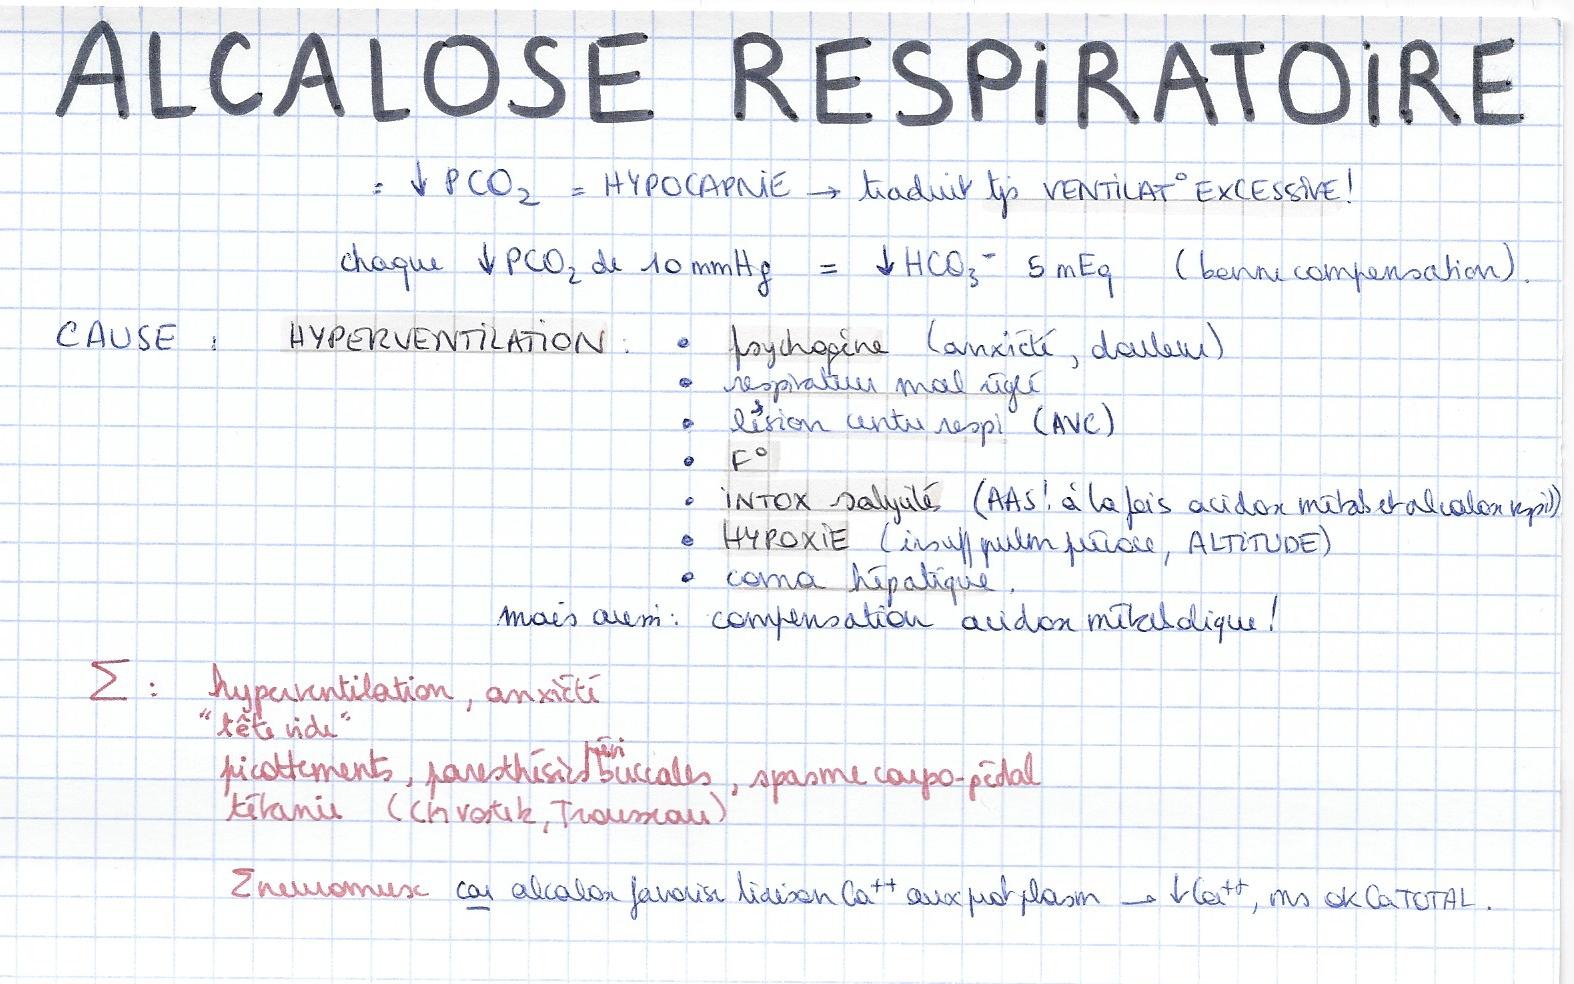 ALCALOSE RESPiRATOiRE
= ↓ PCO₂ = HYPOCAPNiE → traduit tjs VENTiLAT° EXCESSiVE!
chaque ↓ PCO₂ de 10 mmHg = ↓ HCO₃⁻ 5 mEq (bonne compensation).
CAUSE : HYPERVENTiLATiON : • psychogène (anxiété, douleur)
• respirateur mal réglé
• lésion centre respi (AVC)
• F°
• iNTOX salycilés (AAS! à la fois acidose métab et alcalose respi)
• HYPOXiE (insuff pulm précoce, ALTiTUDE)
• coma hépatique.
mais aussi : compensation acidose métabolique!
Σ : hyperventilation, anxiété
"tête vide"
picottements, paresthésies péri buccales, spasme carpo-pédal
tétanie (Chvostek, Trousseau)
Σ neuromusc car alcalose favorise liaison Ca⁺⁺ aux prot plasm → ↓ Ca⁺⁺, ms ok Ca TOTAL.